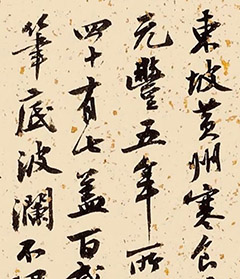 東坡黃州寒食
元豐五年所
四十有七蓋百
筆底波瀾不